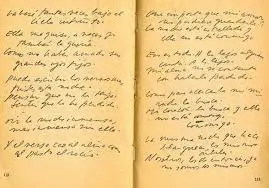 La besé tantas veces bajo el
cielo infinito.
Ella me quiso, a veces yo
también la quería.
Cómo no haber amado sus
grandes ojos fijos.
Puedo escribir los versos más
tristes esta noche.
Pensar que no la tengo.
Sentir que la he perdido.
Oir la noche inmensa,
más inmensa sin ella.
Y el verso cae al alma como
al pasto el rocío.
Qué importa que mi amor
no pudiera guardarla.
La noche está estrellada y
ella no está conmigo.
Eso es todo. A lo lejos alguien
canta. A lo lejos.
Mi alma no se contenta
con haberla perdido.
Como para acercarla mi mi-
rada la busca.
Mi corazón la busca y ella
no está
conmigo.
La misma noche que hace
blanquear los mismos
árboles.
Nosotros, los de entonces, ya
no somos los mismos.